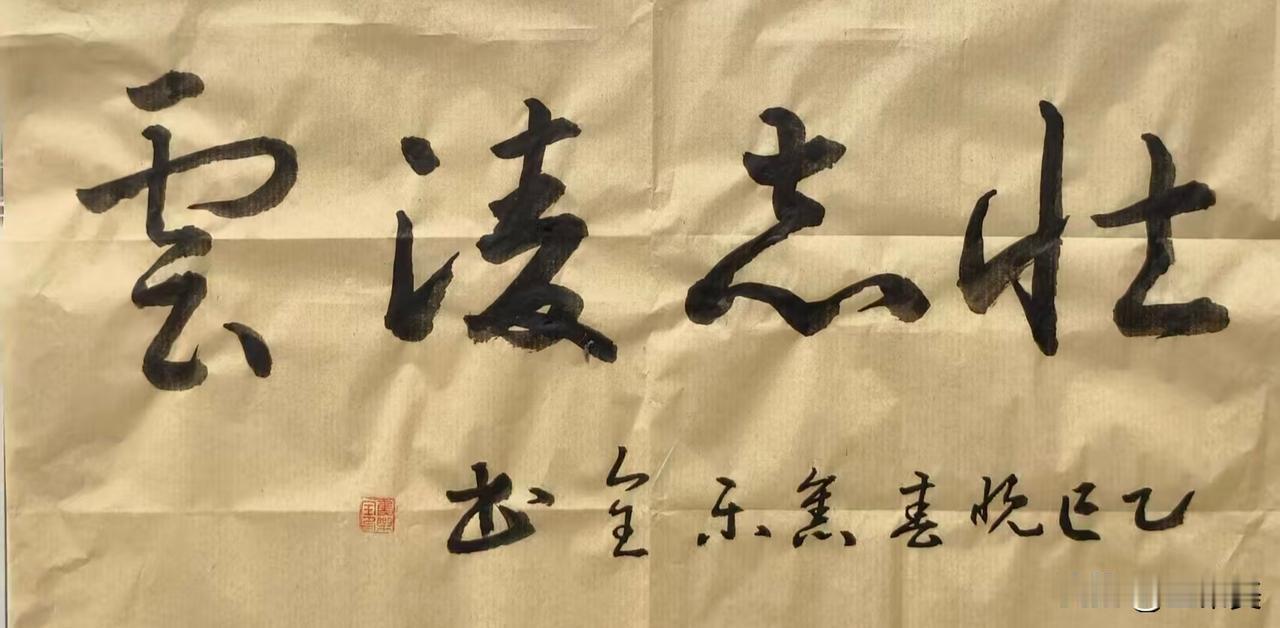 壮志凌雲
乙巳晚春焦乐金书